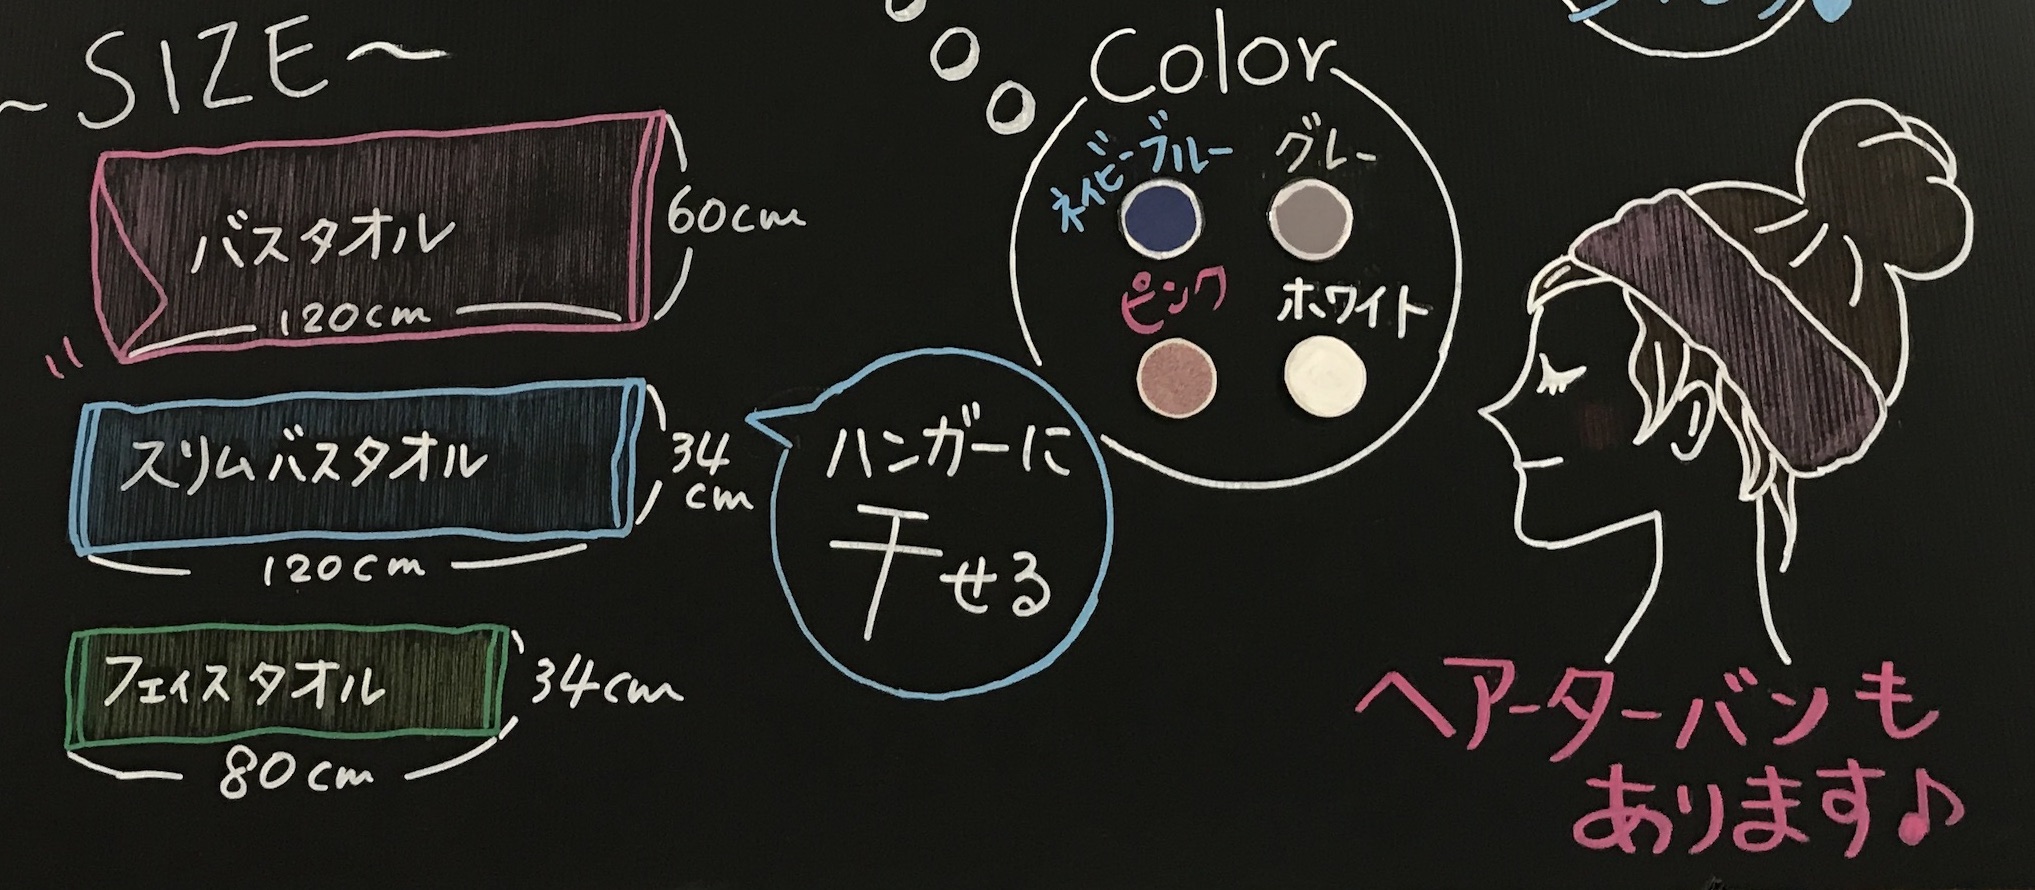 ~SIZE~
バスタオル
60cm
120cm
スリムバスタオル
34
cm
120cm
フェイスタオル
34cm
80cm
ハンガーに
干せる
Color
ネイビーブルー
グレー
ピンク
ホワイト
ヘアーターバンも
あります♪